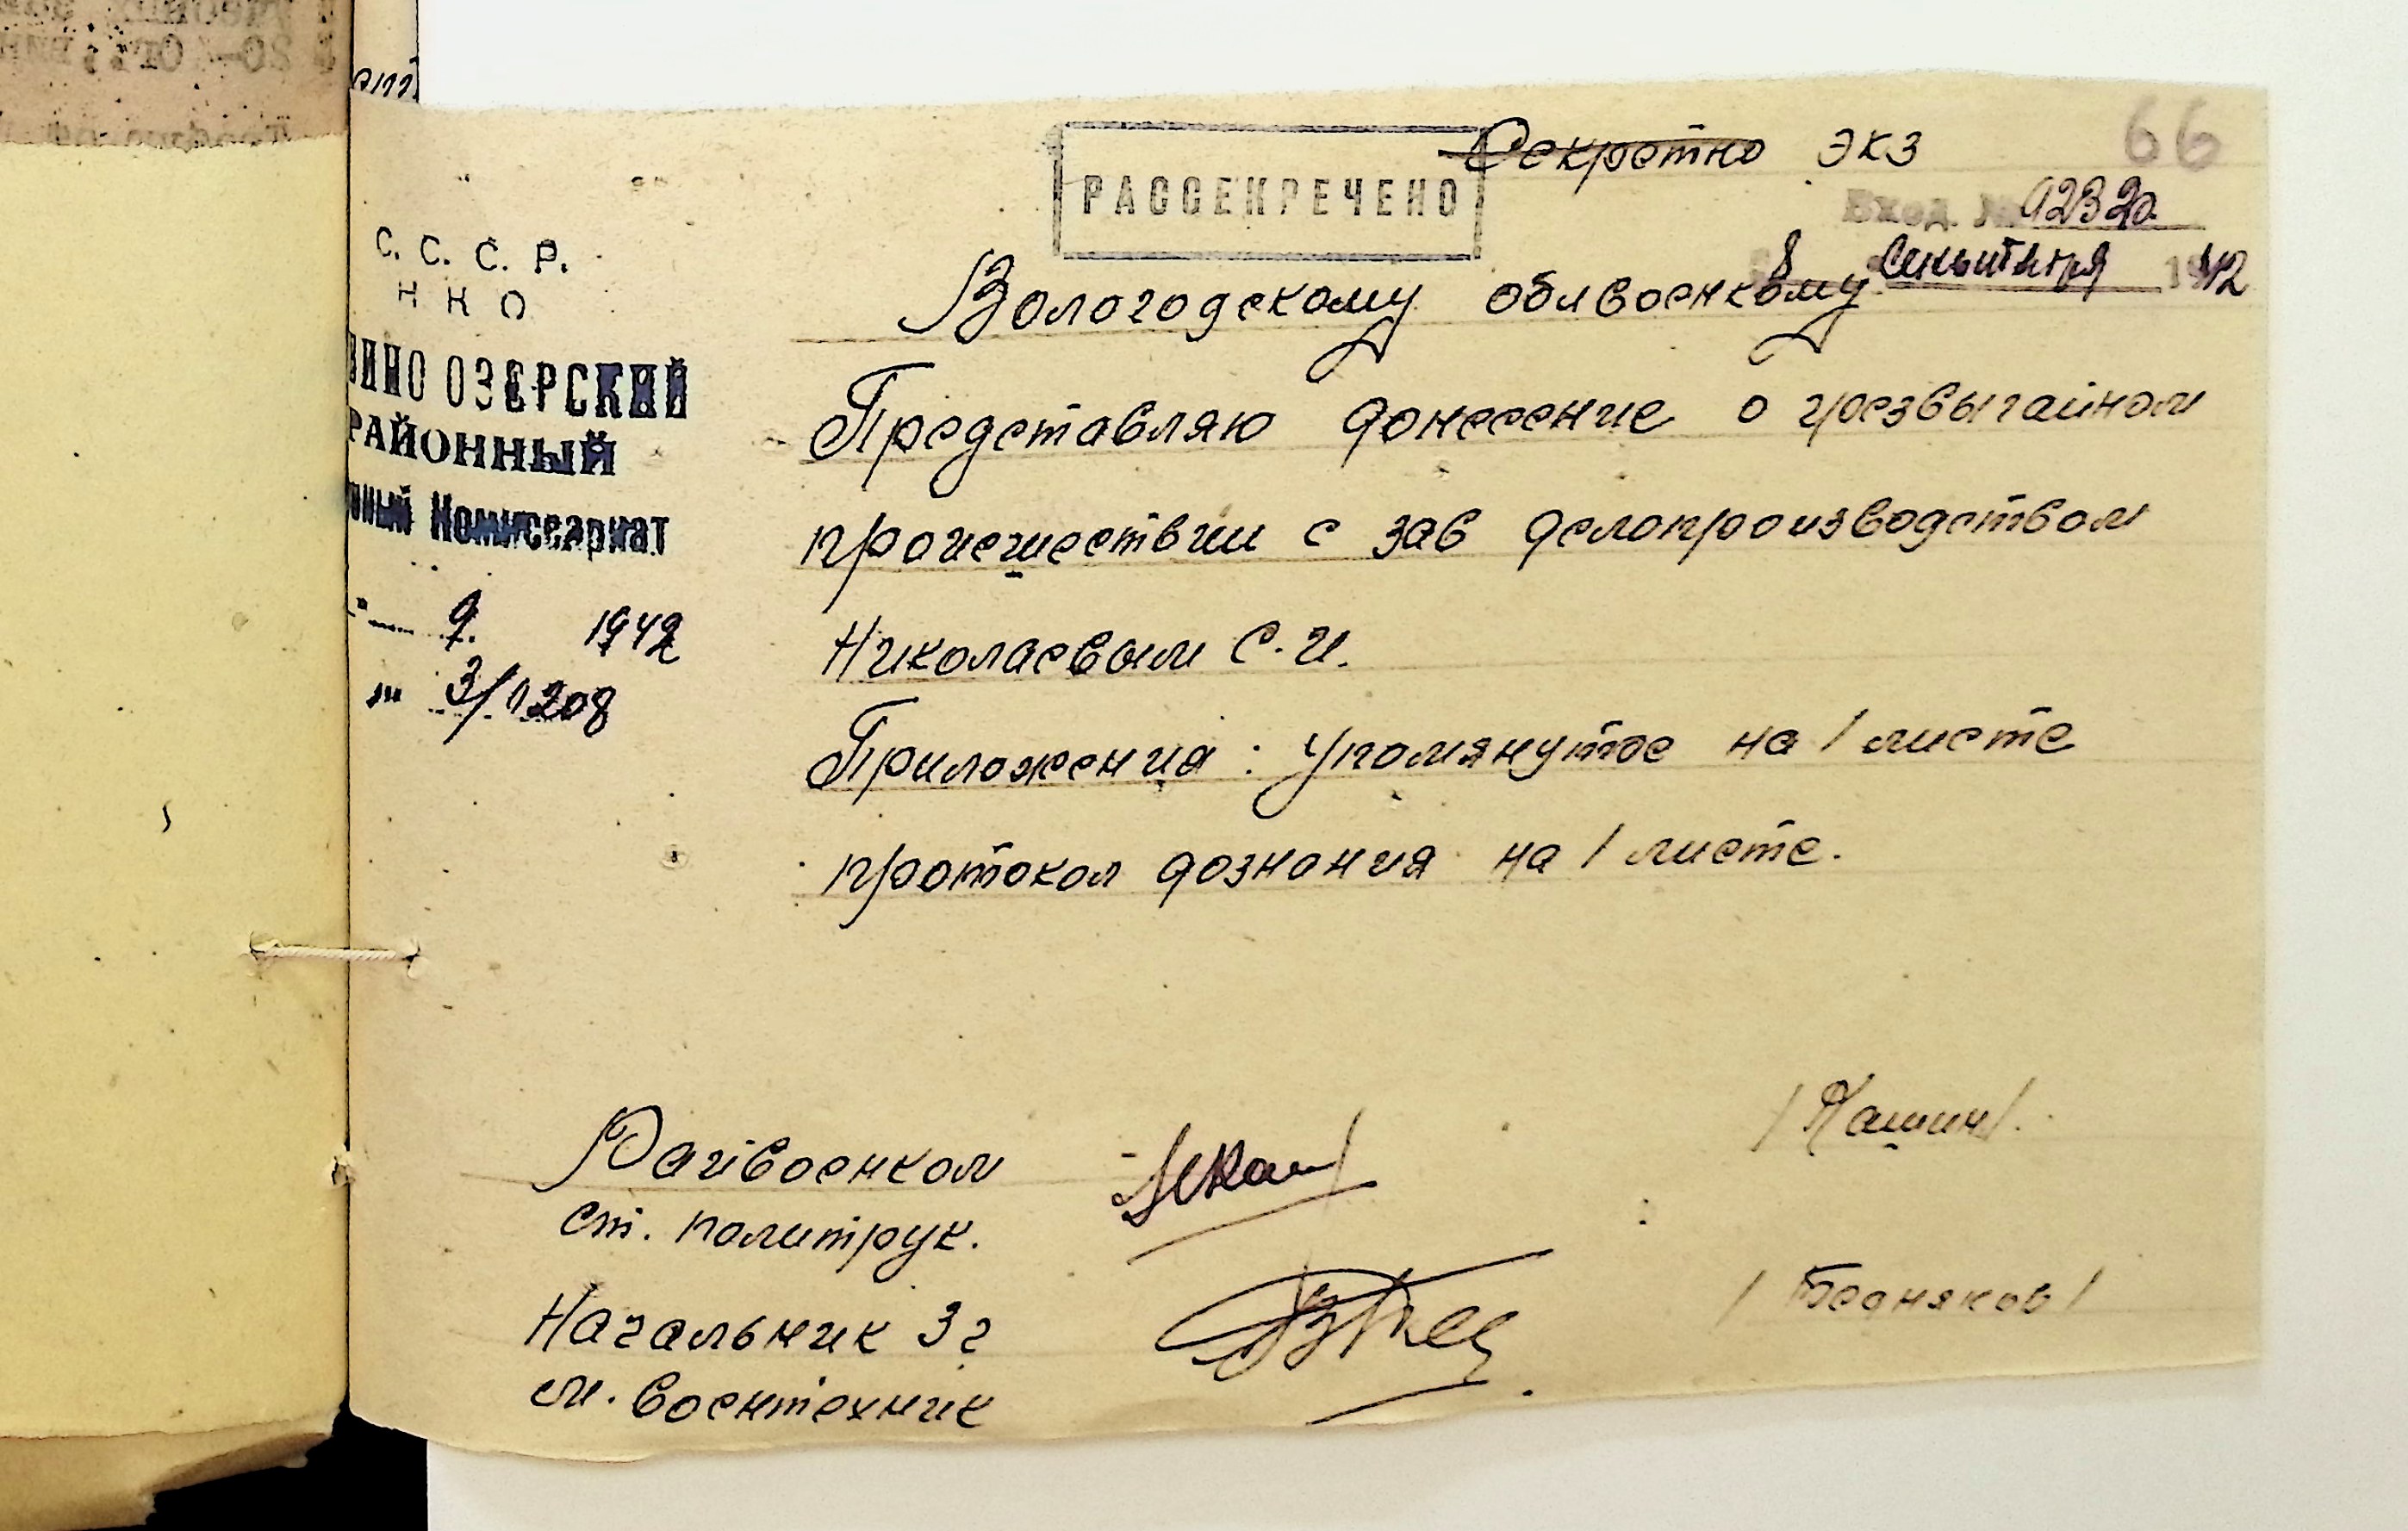 Секретно экз
66
РАССЕКРЕЧЕНО
Вход. № 02320
8 сентября 1942
С. С. С. Р.
Н К О
ОЗЕРСКИЙ
РАЙОННЫЙ
Комиссариат
9. 1942
3/0208
Вологодскому облвоенкому
Представляю донесение о чрезвычайном
происшествии с зав делопроизводством
Николаевым С.И.
Приложения: Упомянутое на 1 листе
протокол дознания на 1 листе.
Райвоенком
ст. политрук.
/Кашин/.
Начальник 3 ч
мл. воентехник
/Бедняков/